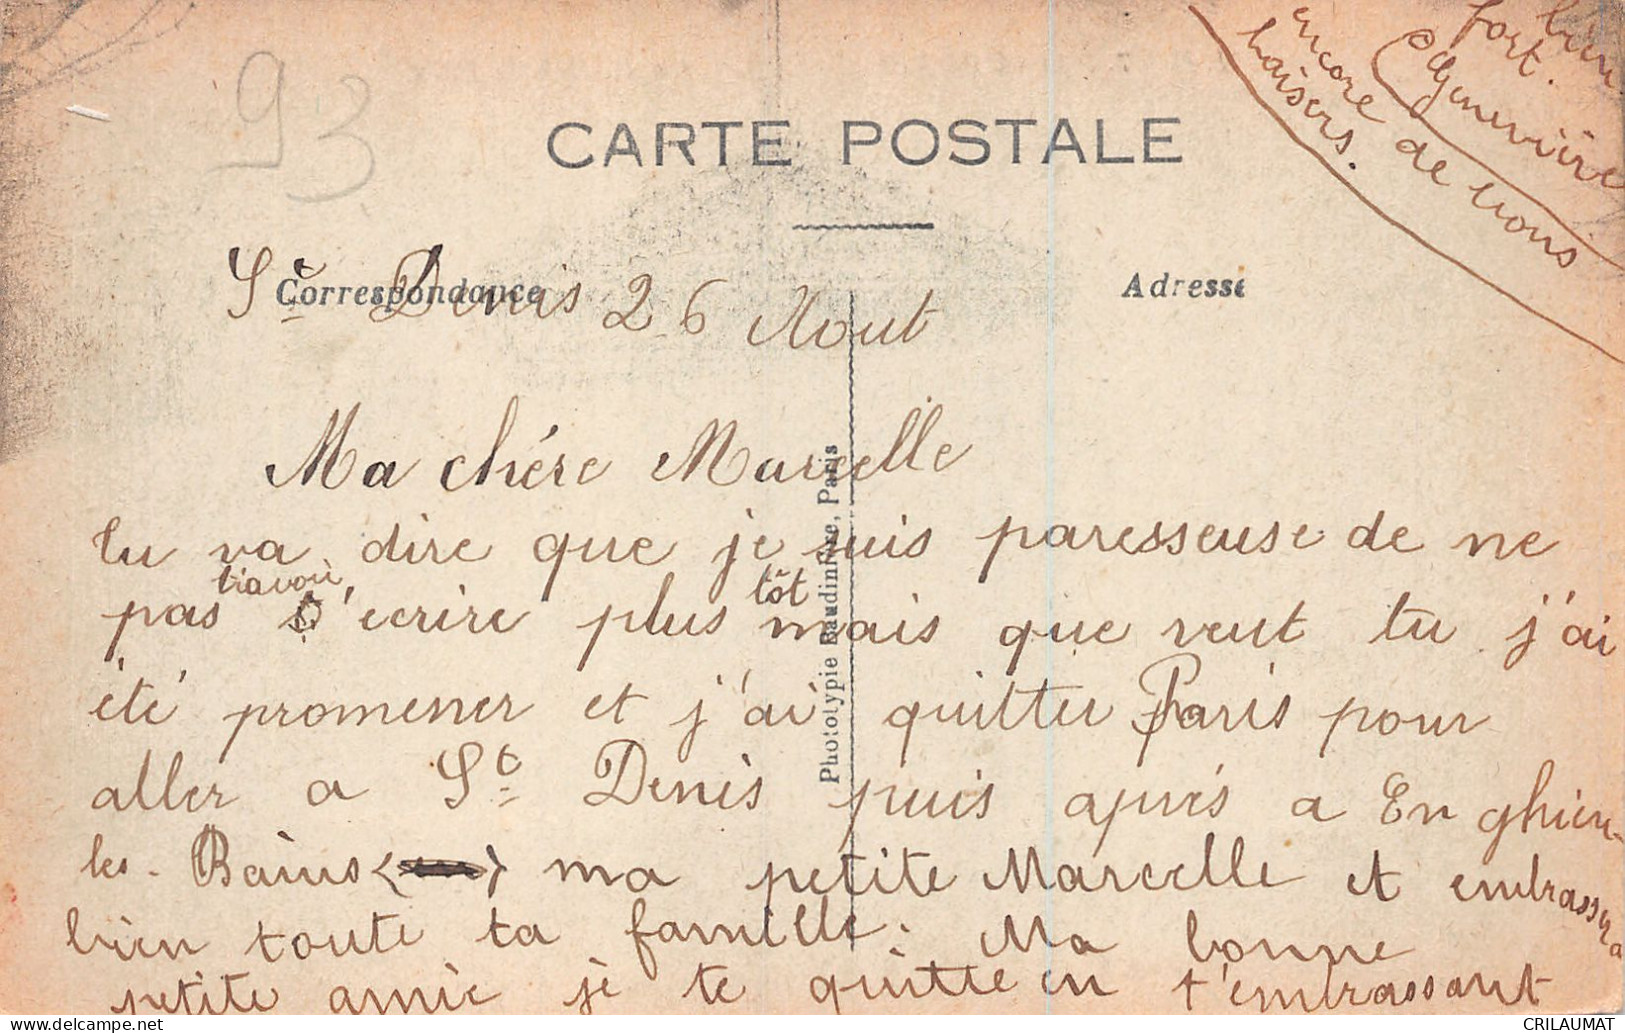 93
CARTE POSTALE
Correspondance
Adresse
St Denis 26 Aout
Ma chére Marcelle
tu va dire que je suis paresseuse de ne
pas t'avoir écrire plus tôt mais que veut tu j'ai
été promener et j'ai quitter Paris pour
aller a St Denis puis aprés a Enghien-
les-Bains ma petite Marcelle et embrassera
bien toute ta famille. Ma bonne
petite amie je te quitte en t'embrassant
bien
fort.
Geneviève
encore de nous
baisers.
Phototypie Baudinière, Paris
CRILAUMAT